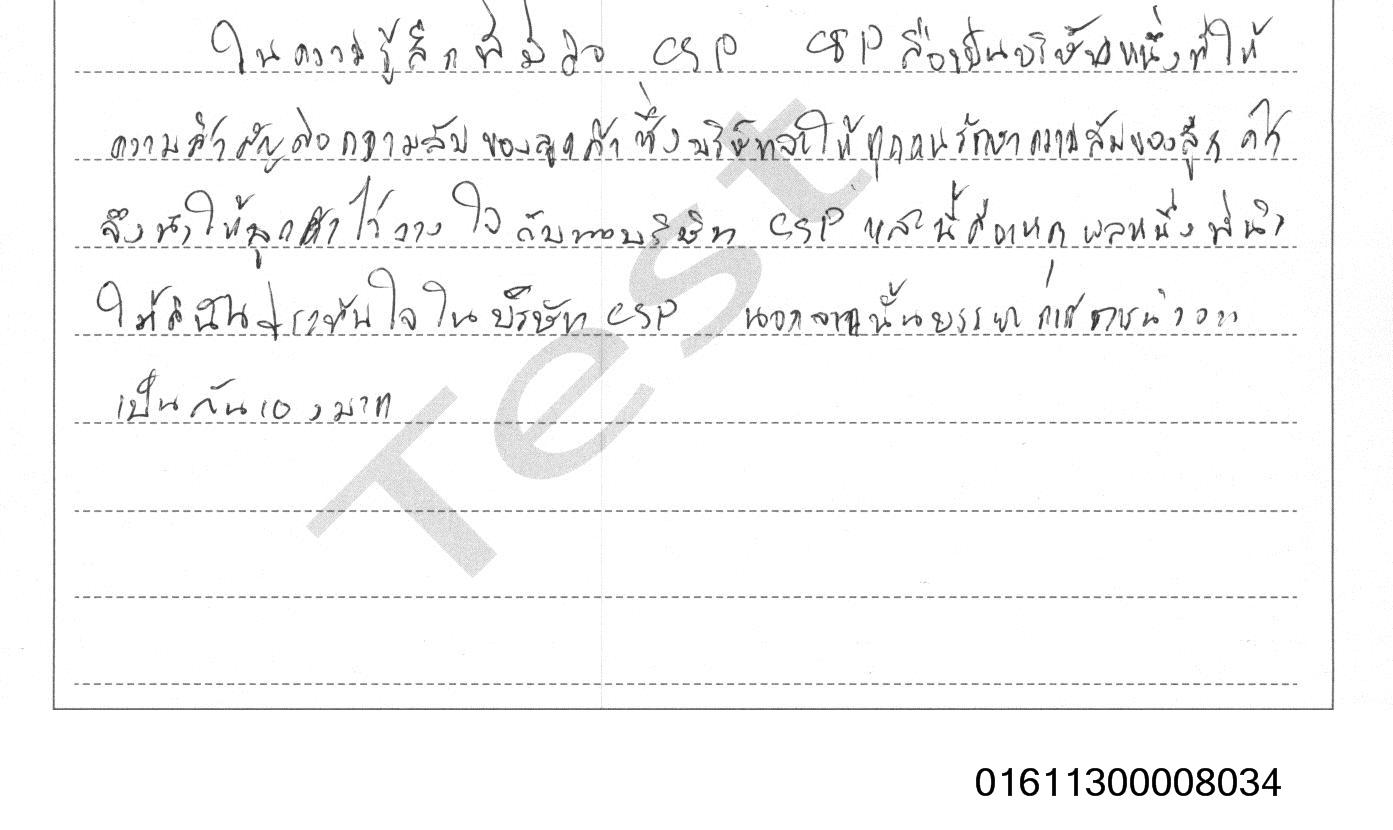 ในความรู้สึกที่มีต่อ CSP CSP ถือเป็นบริษัทหนึ่งที่ให้
ความสำคัญต่อความลับของลูกค้า ซึ่งบริษัทจะให้ทุกคนรักษาความลับของลูกค้า
จึงทำให้ลูกค้าไว้วางใจกับทางบริษัท CSP และนี้คือเหตุผลหนึ่งที่ทำ
ให้ดิฉันประทับใจในบริษัท CSP นอกจากนั้นบรรยากาศการทำงาน
เป็นกันเอง มาก
Test
01611300008034